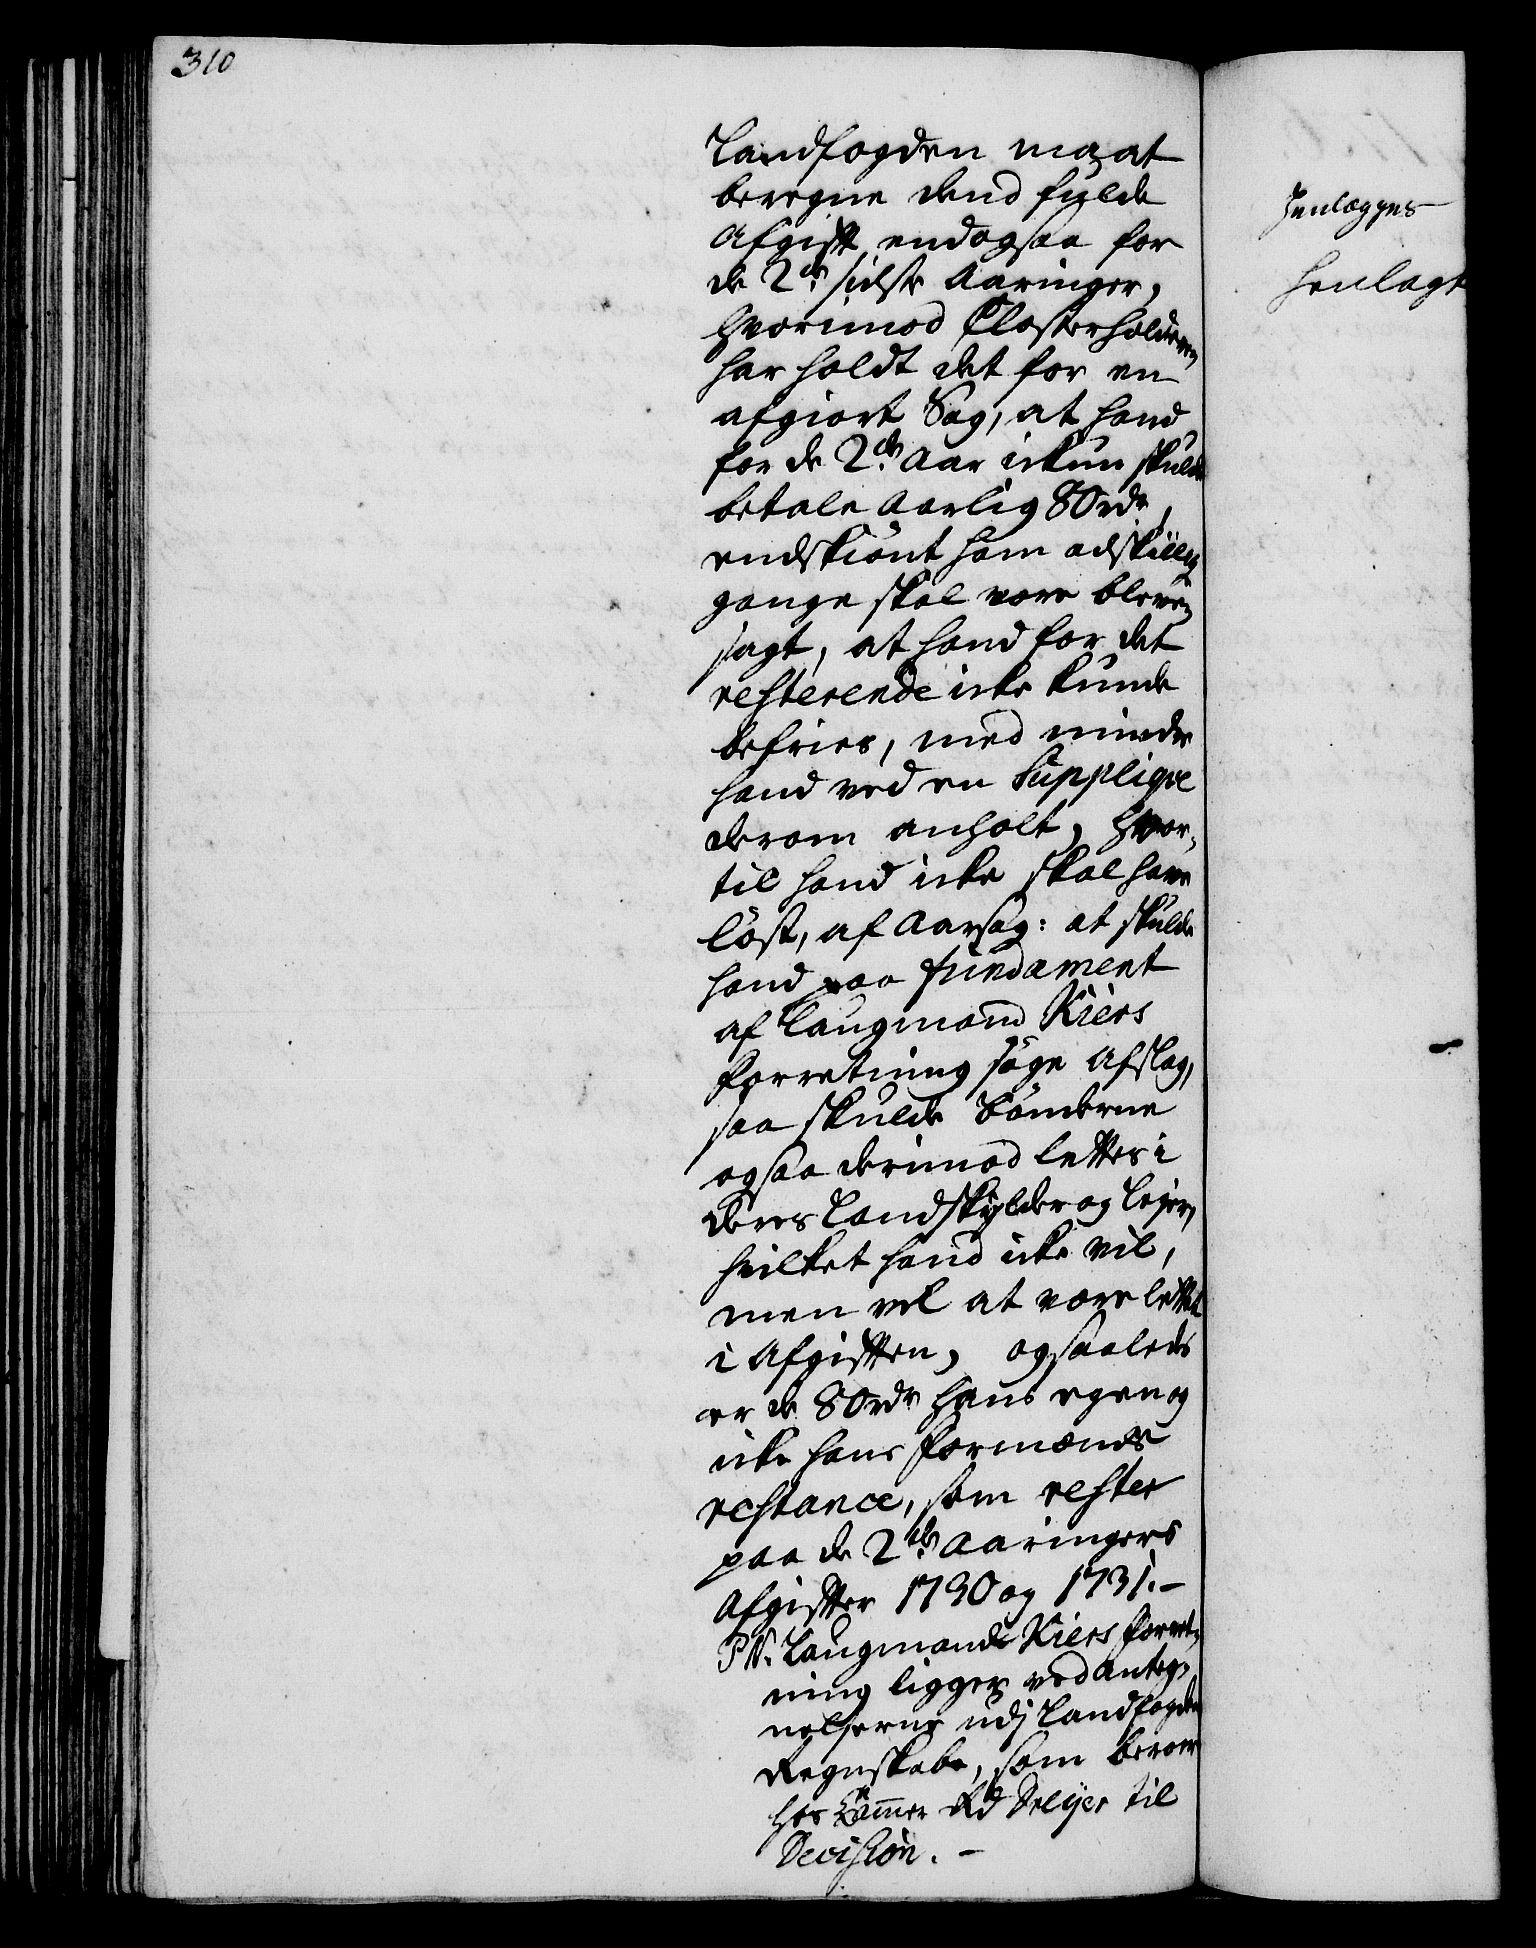 310
Landfogden maat
beregne dend fulde
Afgift endogsaa for
de 2de sidste Aaringer,
hvorimod Closterholderen
har holdt det for en
afgiort Sag, at hand
for de 2de Aar ickun skulde
betale Aarlig 80 rdr,
endskiönt ham adskillig
gange skal være bleven
sagt, at hand for det
resterende icke kunde
befries, med mindre
hand ved en Supplique
derom anholt, hvor,
til hand icke skal have
löst, af Aarsag: at skulde
hand paa fundament
af Laugmand Kiers
forretning söge Afslag,
saa skulde bönderne
ogsaa derimod lettes i
deres Landskylder og Lejer,
hvilket hand icke vil,
men vel at være lettet
i Afgiften, og saaleds
er de 80 rdr hans egen og
icke hans formands
restance, som rester
paa de 2de Aaringers
Afgifter 1730 og 1731.-
PN. Laugmand Kiers forret,
ning ligger ved Anteg,
nelserne udj Landfogdens
Regnskabe, som beroer
hos Cammer Rd Dreyer til
Decision. -
Henlægges
henlagt